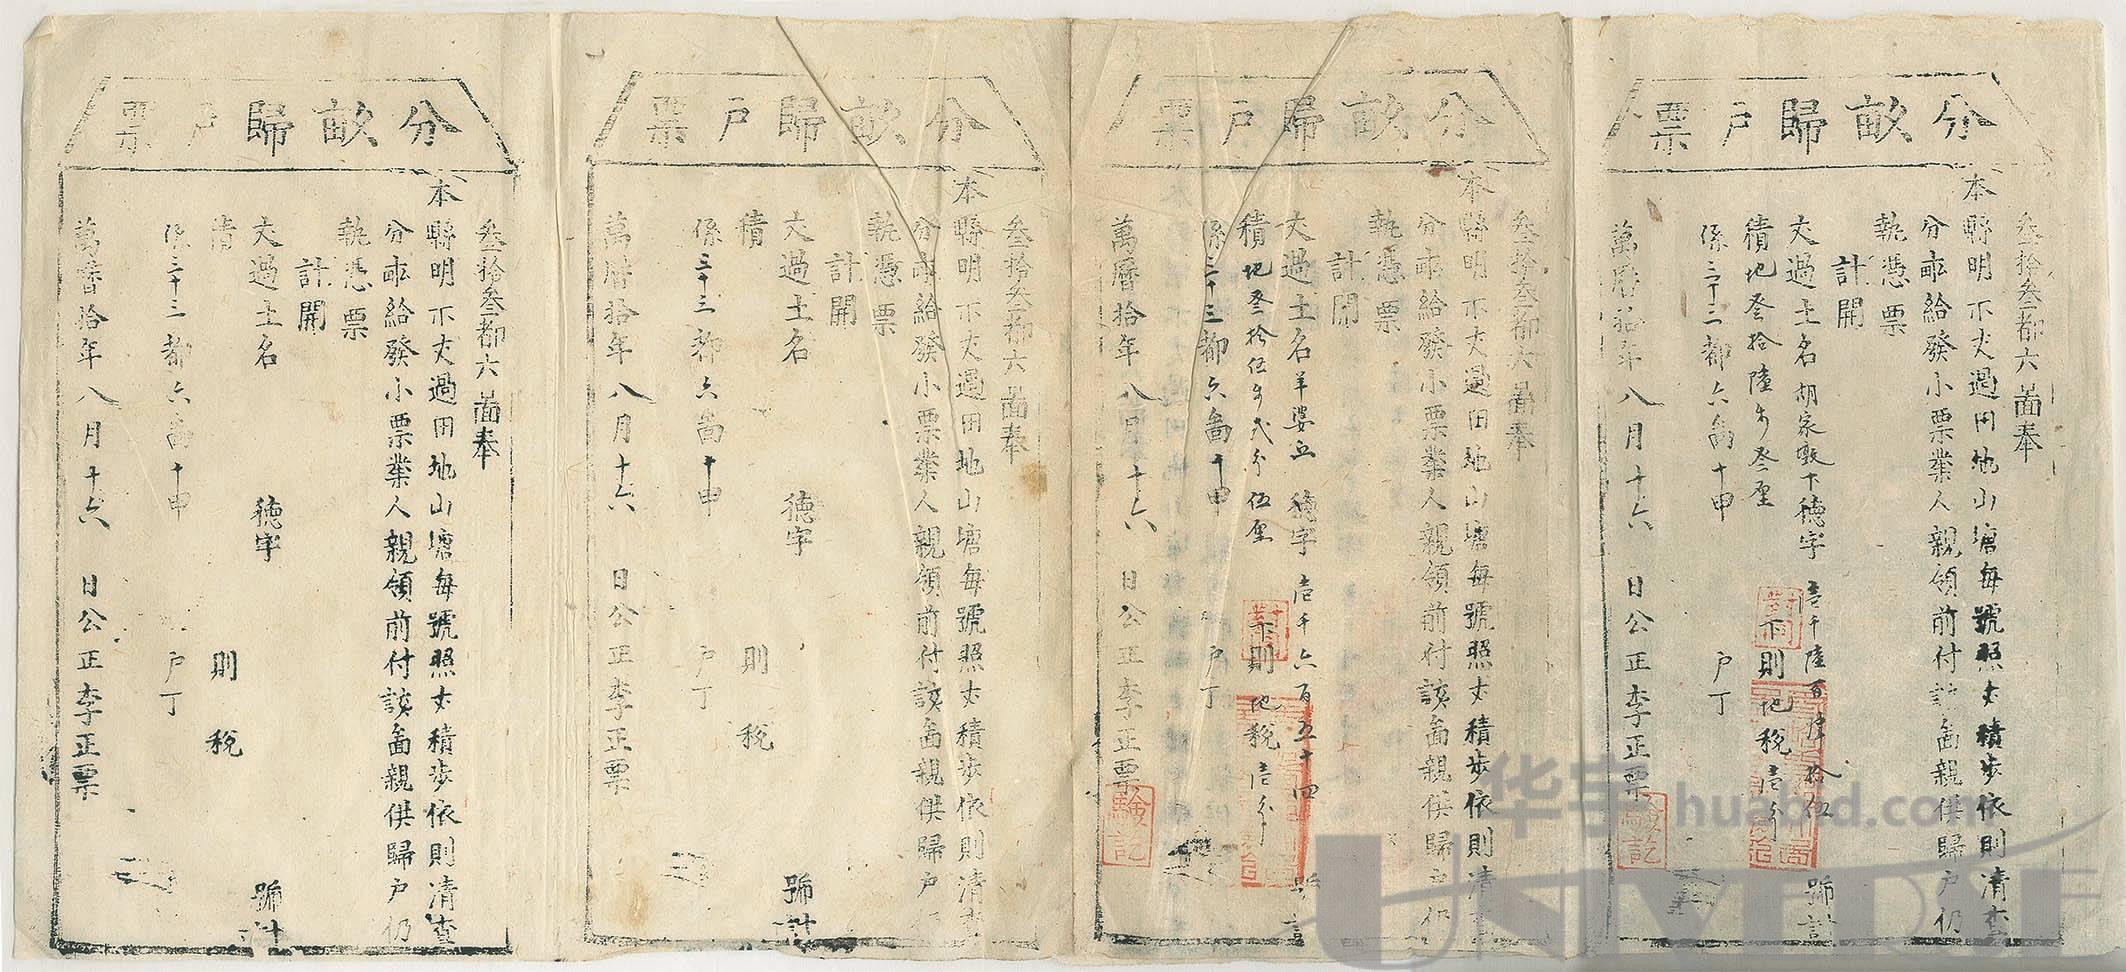 分畝歸户票
叁拾叁都六啚奉
本縣明示丈過田地山塘每號照丈積步依則清查
分畝給發小票業人親領前付該啚親供歸户仍
執憑票
計開
丈過土名胡家墩下德字壹千陸百陸拾伍號計
積地叁拾陸步叁厘 下則地稅壹分
係三十三都六啚十甲 户丁
萬曆拾年八月十六日公正李正票
對同
驗訖
分畝歸户票
叁拾叁都六啚奉
本縣明示丈過田地山塘每號照丈積步依則清查
分畝給發小票業人親領前付該啚親供歸户仍
執憑票
計開
丈過土名羊婆丘 德字壹千六百五十四號計
積地叁拾伍步弍分伍厘 下則地稅壹分
係三十三都六啚十甲 户丁
萬曆拾年八月十六日公正李正票
對同
驗訖
分畝歸户票
叁拾叁都六啚奉
本縣明示丈過田地山塘每號照丈積步依則清查
分畝給發小票業人親領前付該啚親供歸户仍
執憑票
計開
丈過土名 德字 號計
積 則 稅
係三十三都六啚十甲 户丁
萬曆拾年八月十六日公正李正票
分畝歸户票
叁拾叁都六啚奉
本縣明示丈過田地山塘每號照丈積步依則清查
分畝給發小票業人親領前付該啚親供歸户仍
執憑票
計開
丈過土名 德字 號計
積 則 稅
係三十三都六啚十甲 户丁
萬曆拾年八月十六日公正李正票
华宇 huabid.com
UNIVERSE